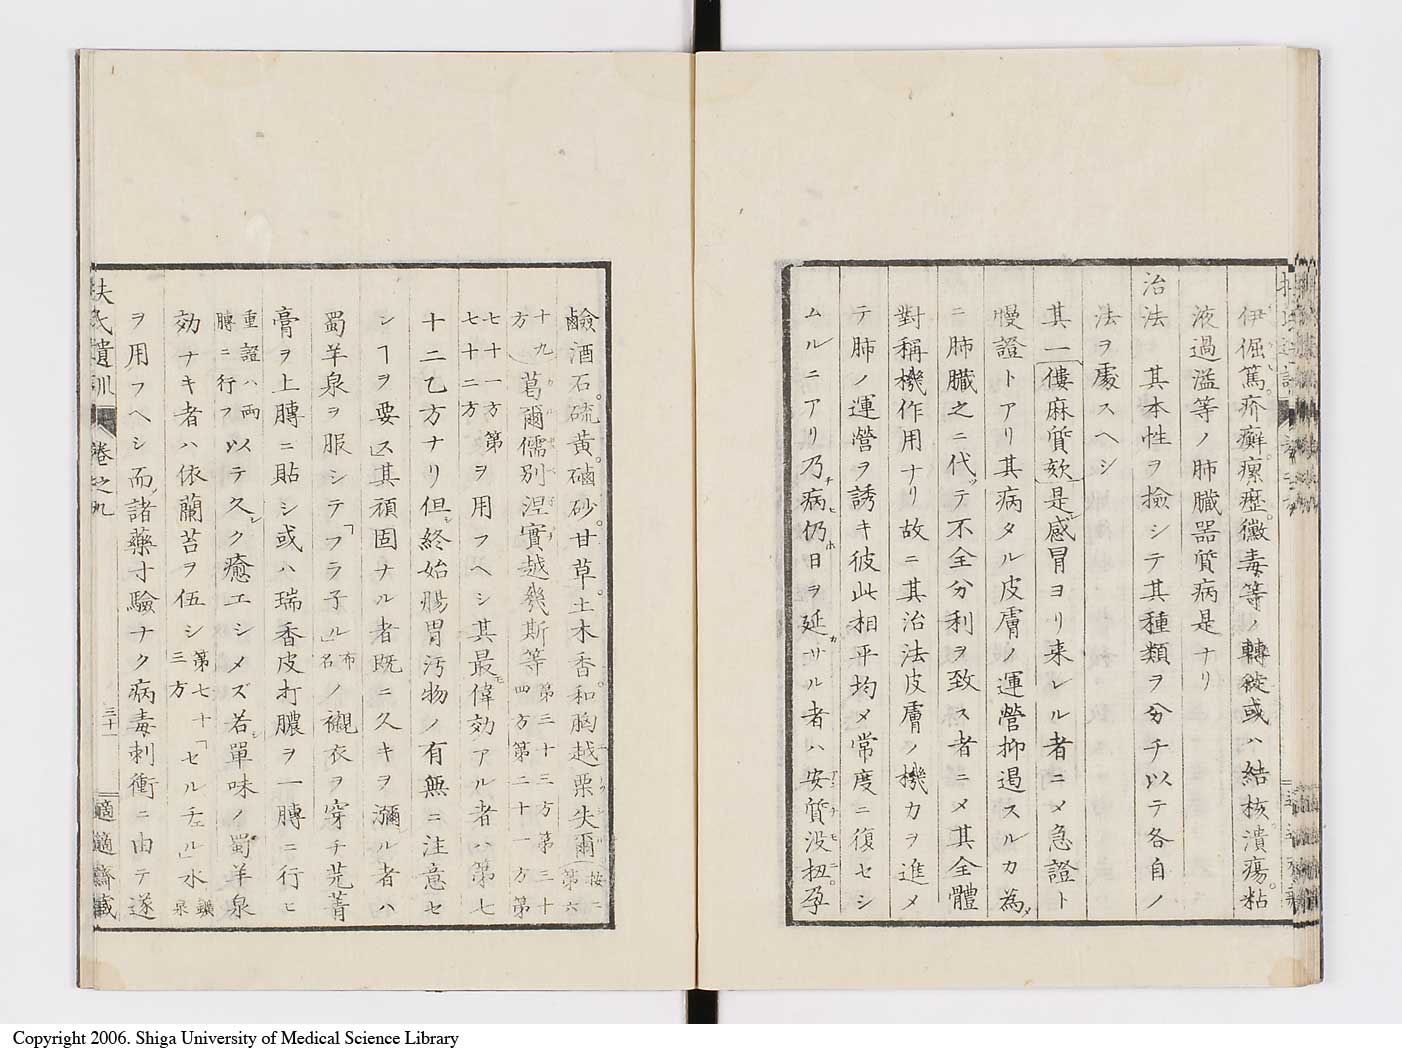 伊倔篤疥癬瘰癧黴毒等ノ轉徙或ハ結核潰瘍粘
液過溢等ノ肺臓器質病是ナリ
治法 其本性ヲ撿シテ其種類ヲ分チ以テ各自ノ
法ヲ處スヘシ
其一僂麻質欬是感冒ヨリ来レル者ニメ急證ト
慢證トアリ其病タル皮膚ノ運營抑遏スルカ為
ニ肺臓之ニ代テ不全分利ヲ致ス者ニメ其全體
對稱機作用ナリ故ニ其治法皮膚ノ機力ヲ進メ
テ肺ノ運營ヲ誘キ彼此相平均メ常度ニ復セシ
ムルニアリ乃病仍日ヲ延サル者ハ安質没扭孕
鹼酒石硫黄磠砂甘草土木香和胸越栗失爾(按ニ第六
十九方)葛爾儒別涅實越幾斯等第三十三方第三十四方第二十一方第
七十一方第七十二方ヲ用フヘシ其最偉効アル者ハ第七
十二乙方ナリ但終始腸胃汚物ノ有無ニ注意セ
シヿヲ要ス其頑固ナル者既ニ久キヲ瀰ル者ハ
蜀羊泉ヲ服シテ「フラ子ル」布名ノ襯衣ヲ穿チ芫菁
膏ヲ上膊ニ貼シ或ハ瑞香皮打膿ヲ一膊ニ行ヒ
重證ハ両膊ニ行フ以テ久ク癒エシメズ若單味ノ蜀羊泉
効ナキ者ハ依蘭苔ヲ伍シ第七十三方「セルチェル」水鑛泉
ヲ用フヘシ而諸藥寸驗ナク病毒刺衝ニ由テ遂
扶氏遺訓 卷之九 三十一 適適齋藏
Copyright 2006. Shiga University of Medical Science Library